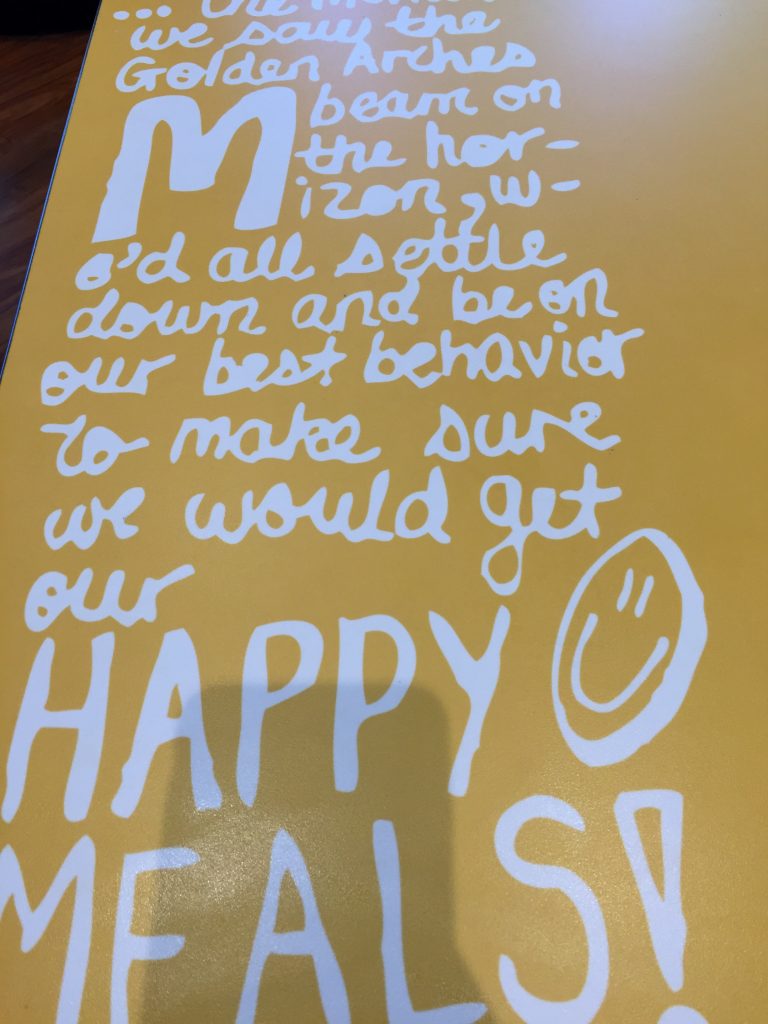 ... the
we saw the
Golden Arches
M beam on
the hor-
izon, w-
e'd all settle
down and be on
our best behavior
to make sure
we would get
our
HAPPY
MEALS!